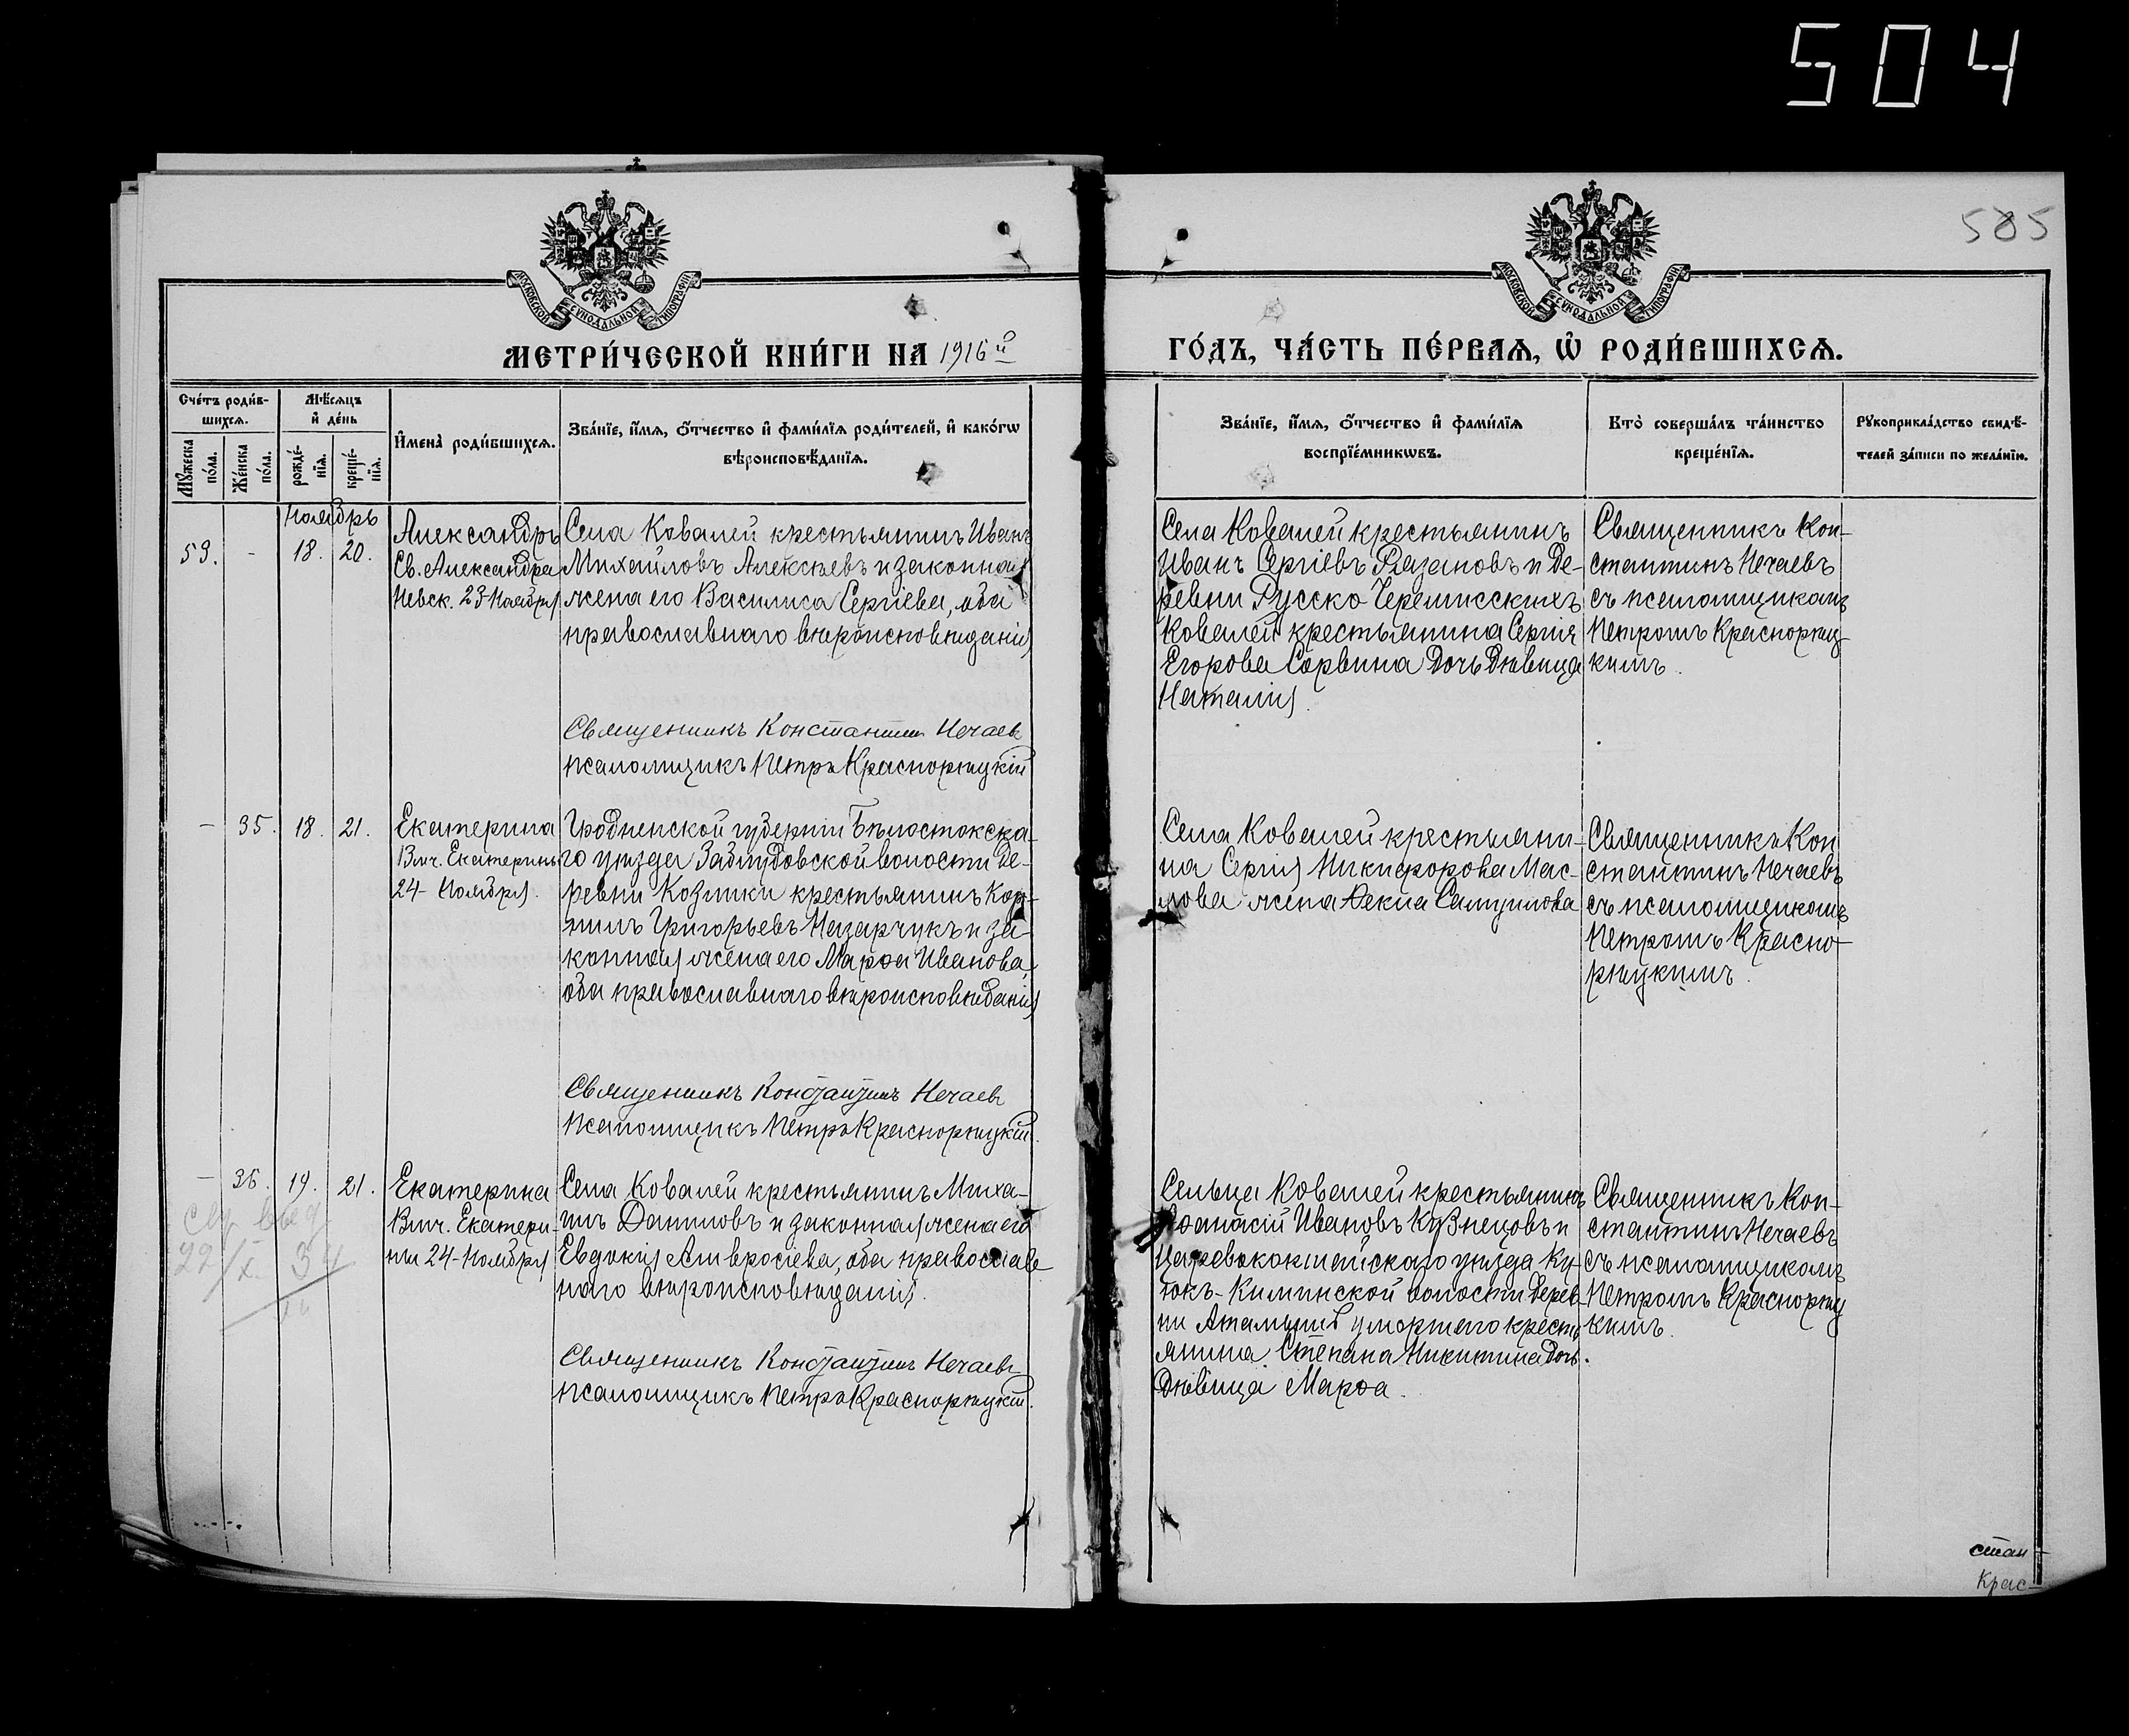 504
585
МОСКОВСКОЙ СѴНОДАЛЬНОЙ ТИПОГРАФІИ
МОСКОВСКОЙ СѴНОДАЛЬНОЙ ТИПОГРАФІИ
МЕТРИ́ЧЕСКОЙ КНИ́ГИ НА 1916й
ГО́ДЪ, ЧА́СТЬ ПЕ́РВАѦ, Ѽ РОДИ́ВШИХСѦ.
Сче́тъ роди́в-
шихсѧ.
Мꙋжеска
по́ла.
Же́нска
по́ла.
Мѣ́сѧцъ
и҆ де́нь
рожде́-
нїѧ.
креще́-
нїѧ.
И҆мена̀ роди́вшихсѧ.
Зва́нїе, и҆́мѧ, ѻ҆́тчество и҆ фами́лїѧ роди́телей, и҆ како́гѡ
вѣроисповѣ́данїѧ.
Зва́нїе, и҆́мѧ, ѻ҆́тчество и҆ фами́лїѧ
воспрїе́мникѡвъ.
Кто̀ соверша́лъ та́инство
креще́нїѧ.
Рꙋкоприкла́дство свидѣ́-
телей за́писи по жела́нїю.
Ноябрь
59. - 18. 20.
Александръ
Св. Александра
Невск. 23 Ноября
Села Ковалей крестьянинъ Иванъ
Михайловъ Алексѣевъ и законная
жена его Василиса Сергіева, оба
православнаго вѣроисповѣданія
Священникъ Константинъ Нечаевъ
Псаломщикъ Петръ Краснорѣцкій
Села Ковалей крестьянинъ
Иванъ Сергіевъ Рязановъ и де-
ревни Русско Черемисскихъ
Ковалей крестьянина Сергія
Егорова Сорвина дочь дѣвица
Наталія.
Священникъ Кон-
стантинъ Нечаевъ
съ псаломщикомъ
Петромъ Краснорѣц-
кимъ.
- 35. 18. 21.
Екатерина
Влч. Екатерины
24 - Ноября.
Гродненской губерніи Бѣлостокска-
го уѣзда Заблудовской волости де-
ревни Козлики крестьянинъ Кор-
нилъ Григорьевъ Назарчукъ и за-
конная жена его Марѳа Иванова,
оба православнаго вѣроисповѣданія
Священникъ Константинъ Нечаевъ
Псаломщикъ Петръ Краснорѣцкій.
Села Ковалей крестьяни-
на Сергія Никифорова Мас-
лова жена Ѳекла Самуилова
Священникъ Кон
стантинъ Нечаевъ
съ псаломщикомъ
Петромъ Красно-
рѣцкимъ.
- 36. 19. 21.
22/X 34
Екатерина
Влч. Екатери-
ны 24 - Ноября
Села Ковалей крестьянинъ Миха-
илъ Даниловъ и законная жена его
Евдокія Амвросіева, оба православ-
наго вѣроисповѣданія.
Священникъ Константинъ Нечаевъ
Псаломщикъ Петръ Краснорѣцкій.
Сельца Ковалей крестьянинъ
Аѳанасій Ивановъ Кузнецовъ и
Царевококшайскаго уѣзда Ку-
юкъ-Кининской волости дерев-
ни умершаго кресть
янина Степана Никитина дочь.
дѣвица Марѳа.
Священникъ Кон-
стантинъ Нечаевъ
съ псаломщикомъ
Петромъ Краснорѣц
кимъ.
стан-
Крас-